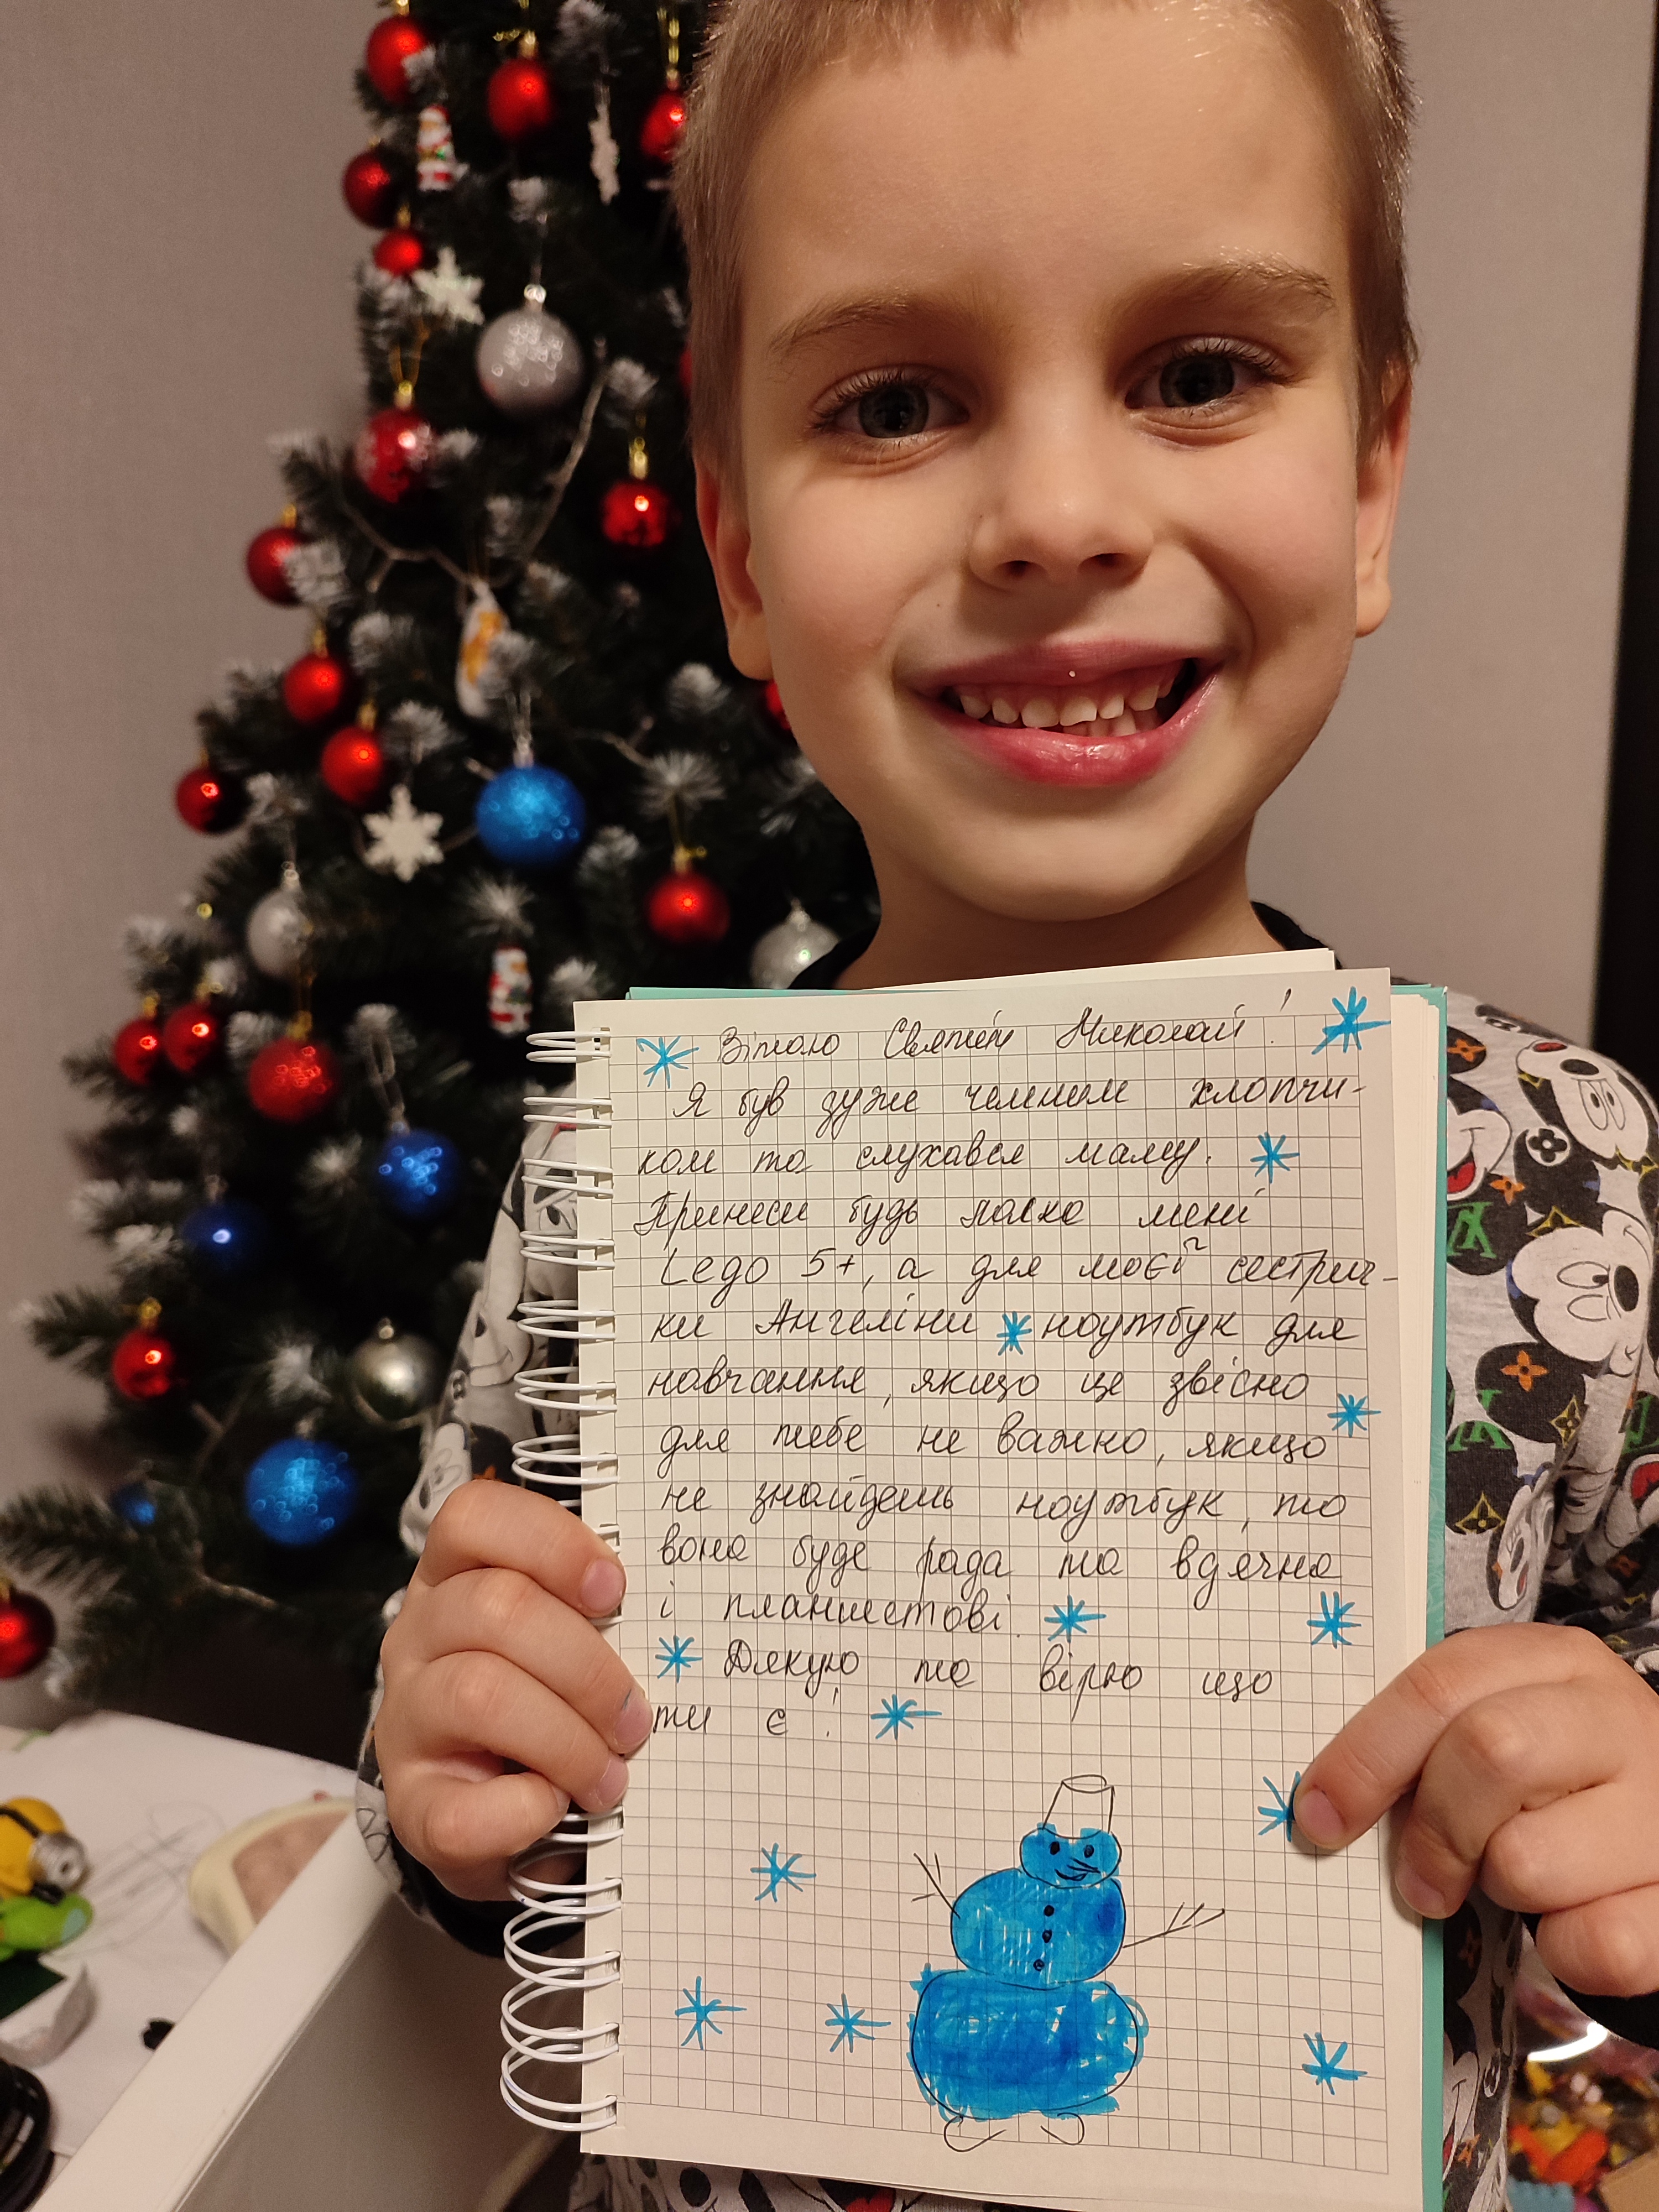 Вітаю Святий Миколай!
Я був дуже чемним хлопчи-
ком та слухався маму.
Принеси будь ласка мені
Lego 5+, а для моєї сестрич-
ки Ангеліни ноутбук для
навчання, якщо це звісно
для тебе не важко, якщо
не знайдешь ноутбук, то
вона буде рада та вдячна
і планшетові.
Дякую та вірю що
ти є!